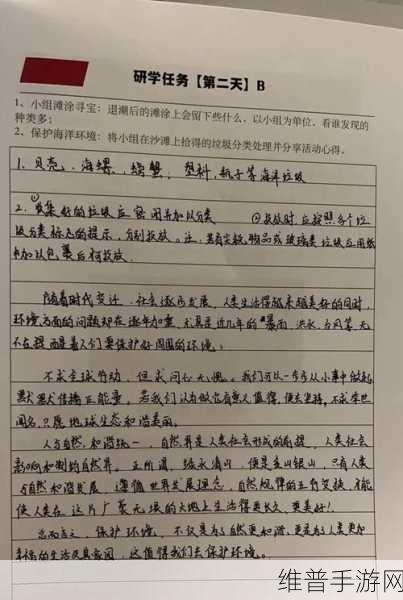 研学任务【第二天】B
1、小组滩涂寻宝：退潮后的滩涂上会留下些什么，以小组为单位，看谁发现的
种类多；
2、保护海洋环境：将小组在沙滩上拾得的垃圾分类处理并分享活动心得。
1. 贝壳、海螺、螃蟹、塑料、瓶子等海洋垃圾
2. ①收集好的垃圾应密闭并加以分类 ②投放时应按照各个垃
圾分类标志的提示，分别投放。注：若有尖锐物品或玻璃类垃圾应用纸
加以包裹后投放
随着时代变迁，社会逐步发展，人类生活得越来越美好的同时，
环境方面的问题却在逐年加重，尤其是近几年的暴雨、洪水、台风等，无
不在提醒着人们要保护好周围的环境：
不求全球行动，但求问心无愧。我们可以一步步从小事中做起，
默默传播正能量。若我们认为做它有意义值得，便去坚持，不求举世
闻名，只愿地球生态和谐美丽。
人与自然和谐统一，自然界是人类社会形成的前提，人类社会
影响和制约自然界。正所谓，绿水青山，便是金山银山，只有人类
与自然和谐发展，遵循世界发展理念，自然规律的正负变换，才能
使人类在这片广袤无垠的大地上生活得更长久，更美好！
总而言之，保护环境，不仅是为了自然更和谐，更是为了人类更加
幸福的生活及其家园，这值得我们去保护环境。
维普手游网